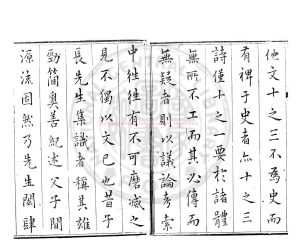 他文十之三不爲史而
有裨于史者亦十之三
詩僅十之一要於諸體
無所不工而其必傳而
無疑者則以議論考索
中徃徃有不可磨滅之
見不獨以文已也昔子
長先生集識者稱其雄
勁簡奧善紀述父子間
源流固然乃先生閎肆